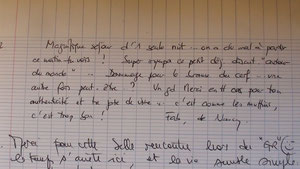 Magnifique séjour d'1 seule nuit ... on a du mal à partir
ce matin tu vois ! Super sympa ce petit déj discut "autour
du monde" ... Dommage pour le brame du cerf ... une
autre fois peut-être ? Un gd Merci en tt cas pour ton
authenticité et ta joie de vivre ... c'est comme les muffins,
c'est trop bon ! de Nancy
Merci pour cette belle rencontre hors du "GR" (
le temps s'arrête ici, et la vie semble simple